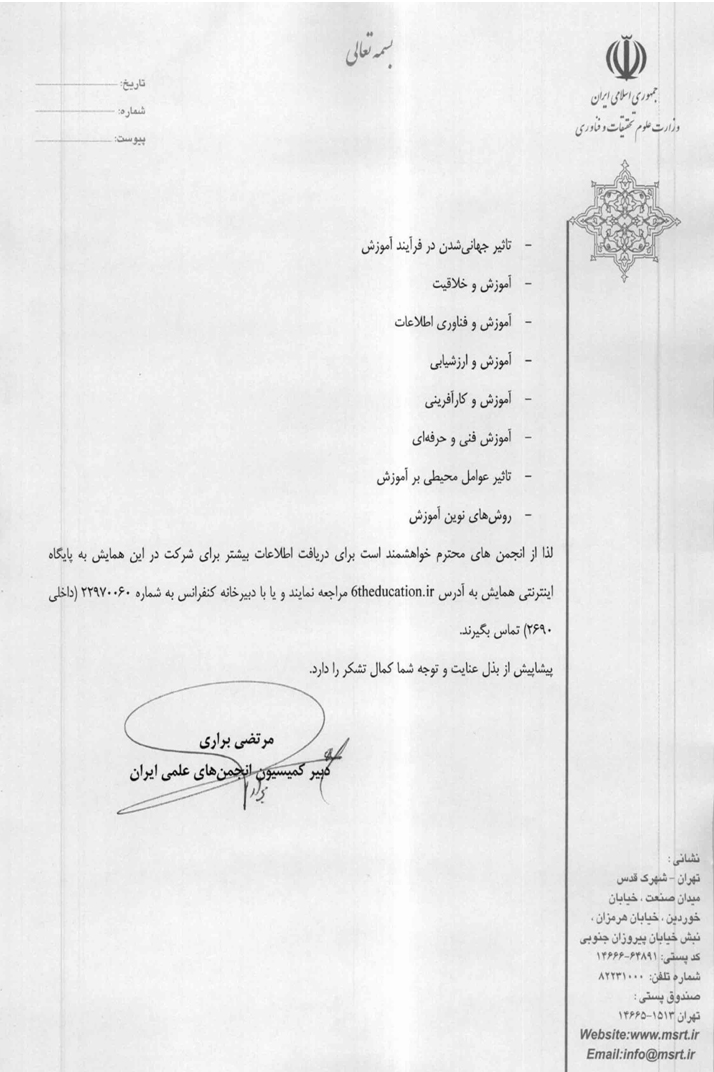 بسمه تعالی
جمهوری اسلامی ایران
وزارت علوم تحقیقات و فناوری
تاریخ:
شماره:
پیوست:
- تاثیر جهانی‌شدن در فرآیند آموزش
- آموزش و خلاقیت
- آموزش و فناوری اطلاعات
- آموزش و ارزشیابی
- آموزش و کارآفرینی
- آموزش فنی و حرفه‌ای
- تاثیر عوامل محیطی بر آموزش
- روش‌های نوین آموزش
لذا از انجمن های محترم خواهشمند است برای دریافت اطلاعات بیشتر برای شرکت در این همایش به پایگاه
اینترنتی همایش به آدرس 6theducation.ir مراجعه نمایند و یا با دبیرخانه کنفرانس به شماره ۲۲۹۷۰۰۶۰ (داخلی
۲۶۹۰) تماس بگیرند.
پیشاپیش از بذل عنایت و توجه شما کمال تشکر را دارد.
مرتضی براری
دبیر کمیسیون انجمن‌های علمی ایران
نشانی :
تهران - شهرک قدس
میدان صنعت ، خیابان
خوردین ، خیابان هرمزان ،
نبش خیابان پیروزان جنوبی
کد پستی: ۱۴۶۶۶-۶۴۸۹۱
شماره تلفن: ۸۲۲۳۱۰۰۰
صندوق پستی :
تهران ۱۵۱۳-۱۴۶۶۵
Website:www.msrt.ir
Email:info@msrt.ir